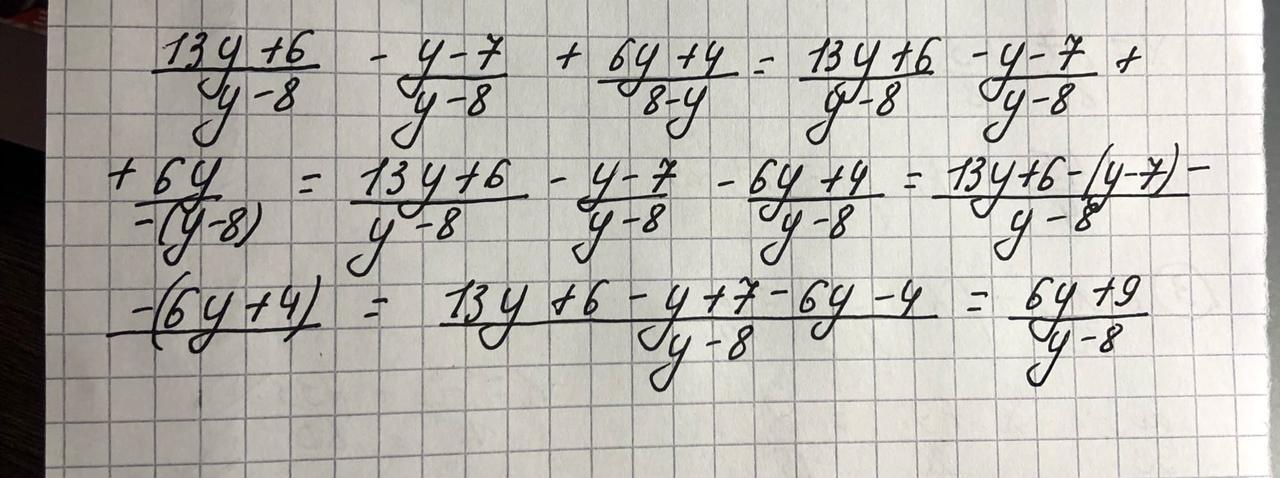 (13y+6)/(y-8) - (y-7)/(y-8) + (6y+4)/(8-y) = (13y+6)/(y-8) - (y-7)/(y-8) +
+ 6y/(-(y-8)) = (13y+6)/(y-8) - (y-7)/(y-8) - (6y+4)/(y-8) = (13y+6-(y-7)-)/(y-8)
-(6y+4) = (13y+6-y+7-6y-4)/(y-8) = (6y+9)/(y-8)